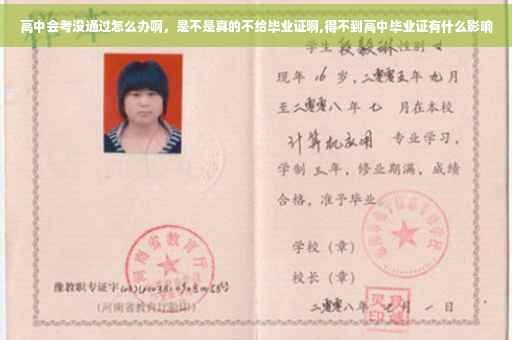 高中会考没通过怎么办啊，是不是真的不给毕业证啊,得不到高中毕业证有什么影响
学生 段毅琳 性别
现年 16 岁，二零零五年 九月
至二零零八年 七 月在本校
计算机应用 专业学习，
学制 三 年，修业期满，成绩
合格，准予毕业。
学校（章）
校长（章）
二零零八年 七 月 一 日
河南省教育厅
豫教职专证字
（河南省教育厅验印）